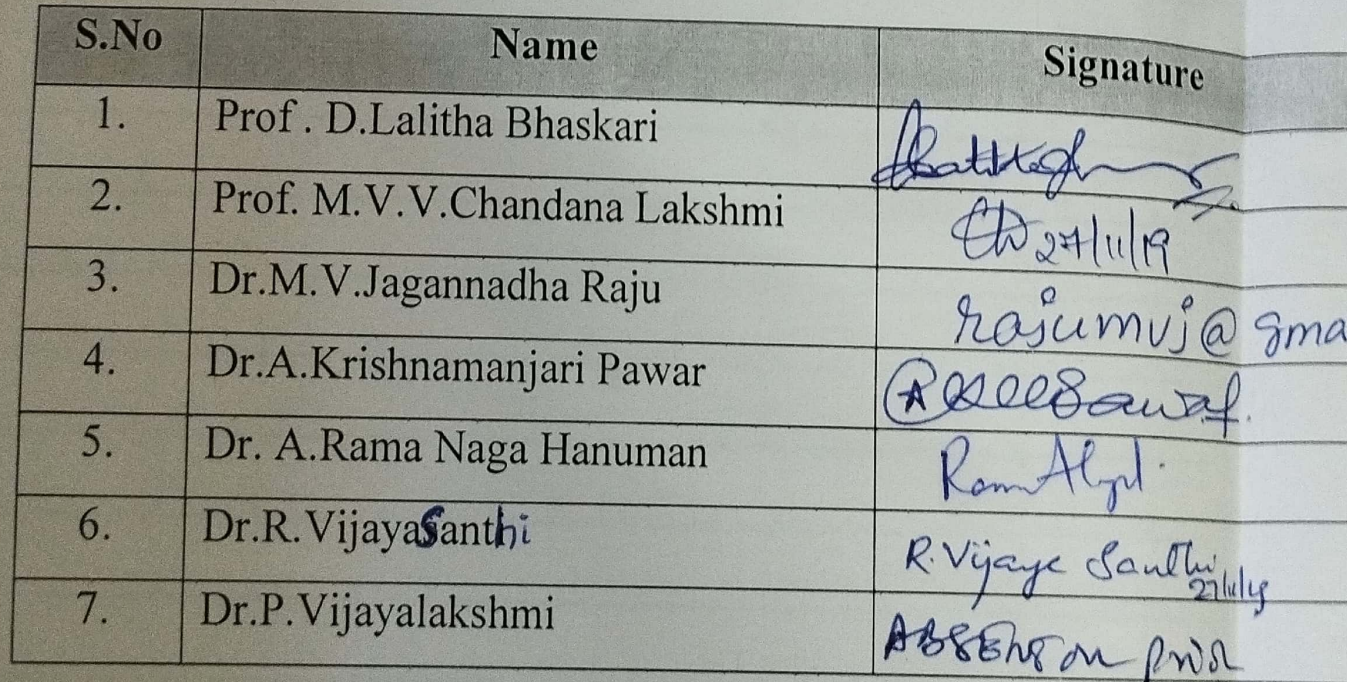 S.No Name Signature
1. Prof. D.Lalitha Bhaskari
2. Prof. M.V.V.Chandana Lakshmi 27/11/19
3. Dr.M.V.Jagannadha Raju rajumvj@gma
4. Dr.A.Krishnamanjari Pawar
5. Dr. A.Rama Naga Hanuman
6. Dr.R.VijayaSanthi R.Vijaya Santhi
27/11/19
7. Dr.P.Vijayalakshmi ABSENT on